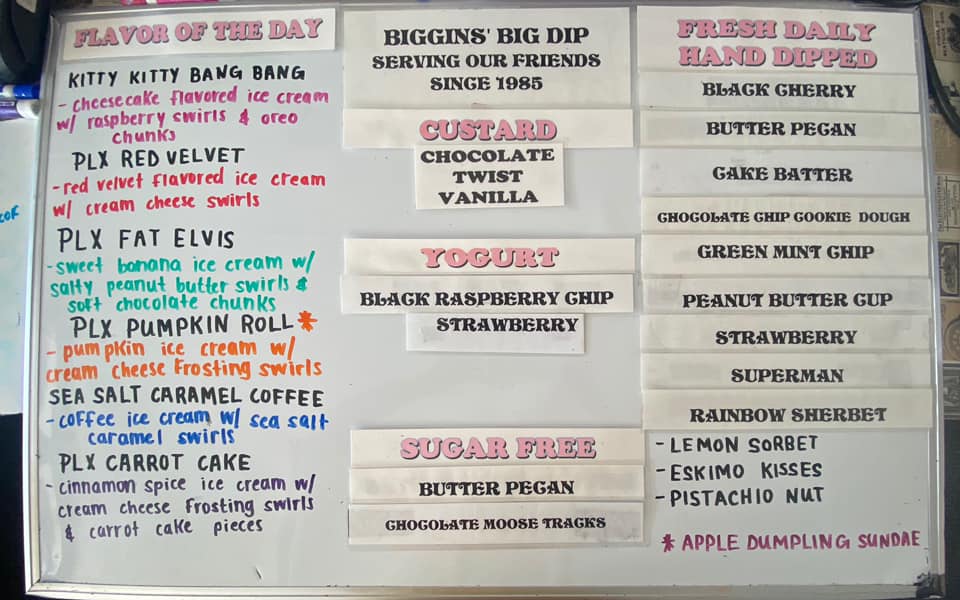 FLAVOR OF THE DAY
KITTY KITTY BANG BANG
- cheesecake flavored ice cream
w/ raspberry swirls & oreo
chunks
PLX RED VELVET
- red velvet flavored ice cream
w/ cream cheese swirls
PLX FAT ELVIS
- sweet banana ice cream w/
salty peanut butter swirls &
soft chocolate chunks
PLX PUMPKIN ROLL *
- pumpkin ice cream w/
cream cheese frosting swirls
SEA SALT CARAMEL COFFEE
- coffee ice cream w/ sea salt
caramel swirls
PLX CARROT CAKE
- cinnamon spice ice cream w/
cream cheese frosting swirls
& carrot cake pieces
BIGGINS' BIG DIP
SERVING OUR FRIENDS
SINCE 1985
CUSTARD
CHOCOLATE
TWIST
VANILLA
YOGURT
BLACK RASPBERRY CHIP
STRAWBERRY
SUGAR FREE
BUTTER PECAN
CHOCOLATE MOOSE TRACKS
FRESH DAILY
HAND DIPPED
BLACK CHERRY
BUTTER PECAN
CAKE BATTER
CHOCOLATE CHIP COOKIE DOUGH
GREEN MINT CHIP
PEANUT BUTTER CUP
STRAWBERRY
SUPERMAN
RAINBOW SHERBET
- LEMON SORBET
- ESKIMO KISSES
- PISTACHIO NUT
* APPLE DUMPLING SUNDAE